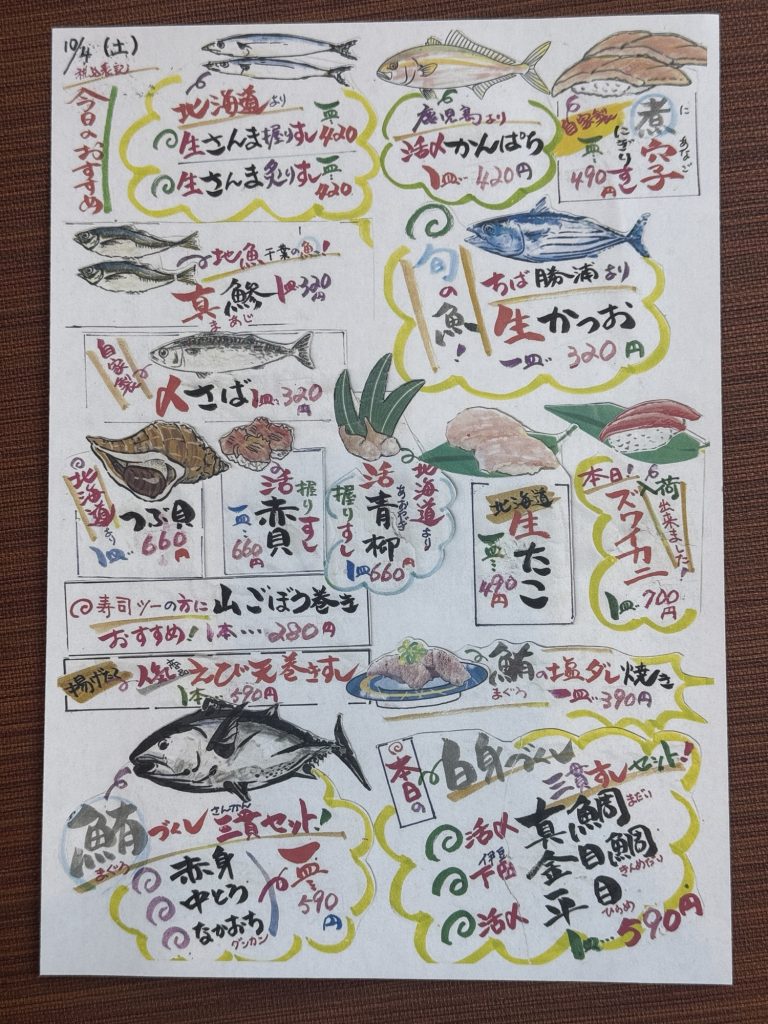 10/4 (土)
税込表記
今日のおすすめ
北海道より
生さんま握りすし 一皿 420
生さんま炙りすし 一皿 420
鹿児島より
活〆かんぱち
1皿… 420円
自家製
煮穴子
に あなご
にぎりすし
一皿… 490円
地魚 千葉の魚!
真鯵 1皿 320円
まあじ
旬の魚!
ちば勝浦より
生かつお
一皿… 320円
自家製
〆さば 1皿… 320円
北海道より
つぶ貝
1皿… 660円
握りすし
活赤貝
一皿… 660円
北海道より
活青柳
あおやぎ
握りすし
1皿 660円
北海道
生たこ
一皿… 490円
本日!入荷出来ました!
ズワイカニ
1皿… 700円
寿司ツーの方に 山ごぼう巻き
おすすめ! 1本… 280円
揚げたて 人気商品 えび天巻きすし
1本… 590円
鮪の塩ダレ焼き
まぐろ
一皿… 390円
鮪づくし 三貫セット!
まぐろ さんかん
赤身
中とろ
なかおち
グンカン
一皿… 590円
本日の
白身づくし
三貫すしセット!
活〆 真鯛
まだい
伊豆下田 金目鯛
きんめだい
活〆 平目
ひらめ
1皿… 590円